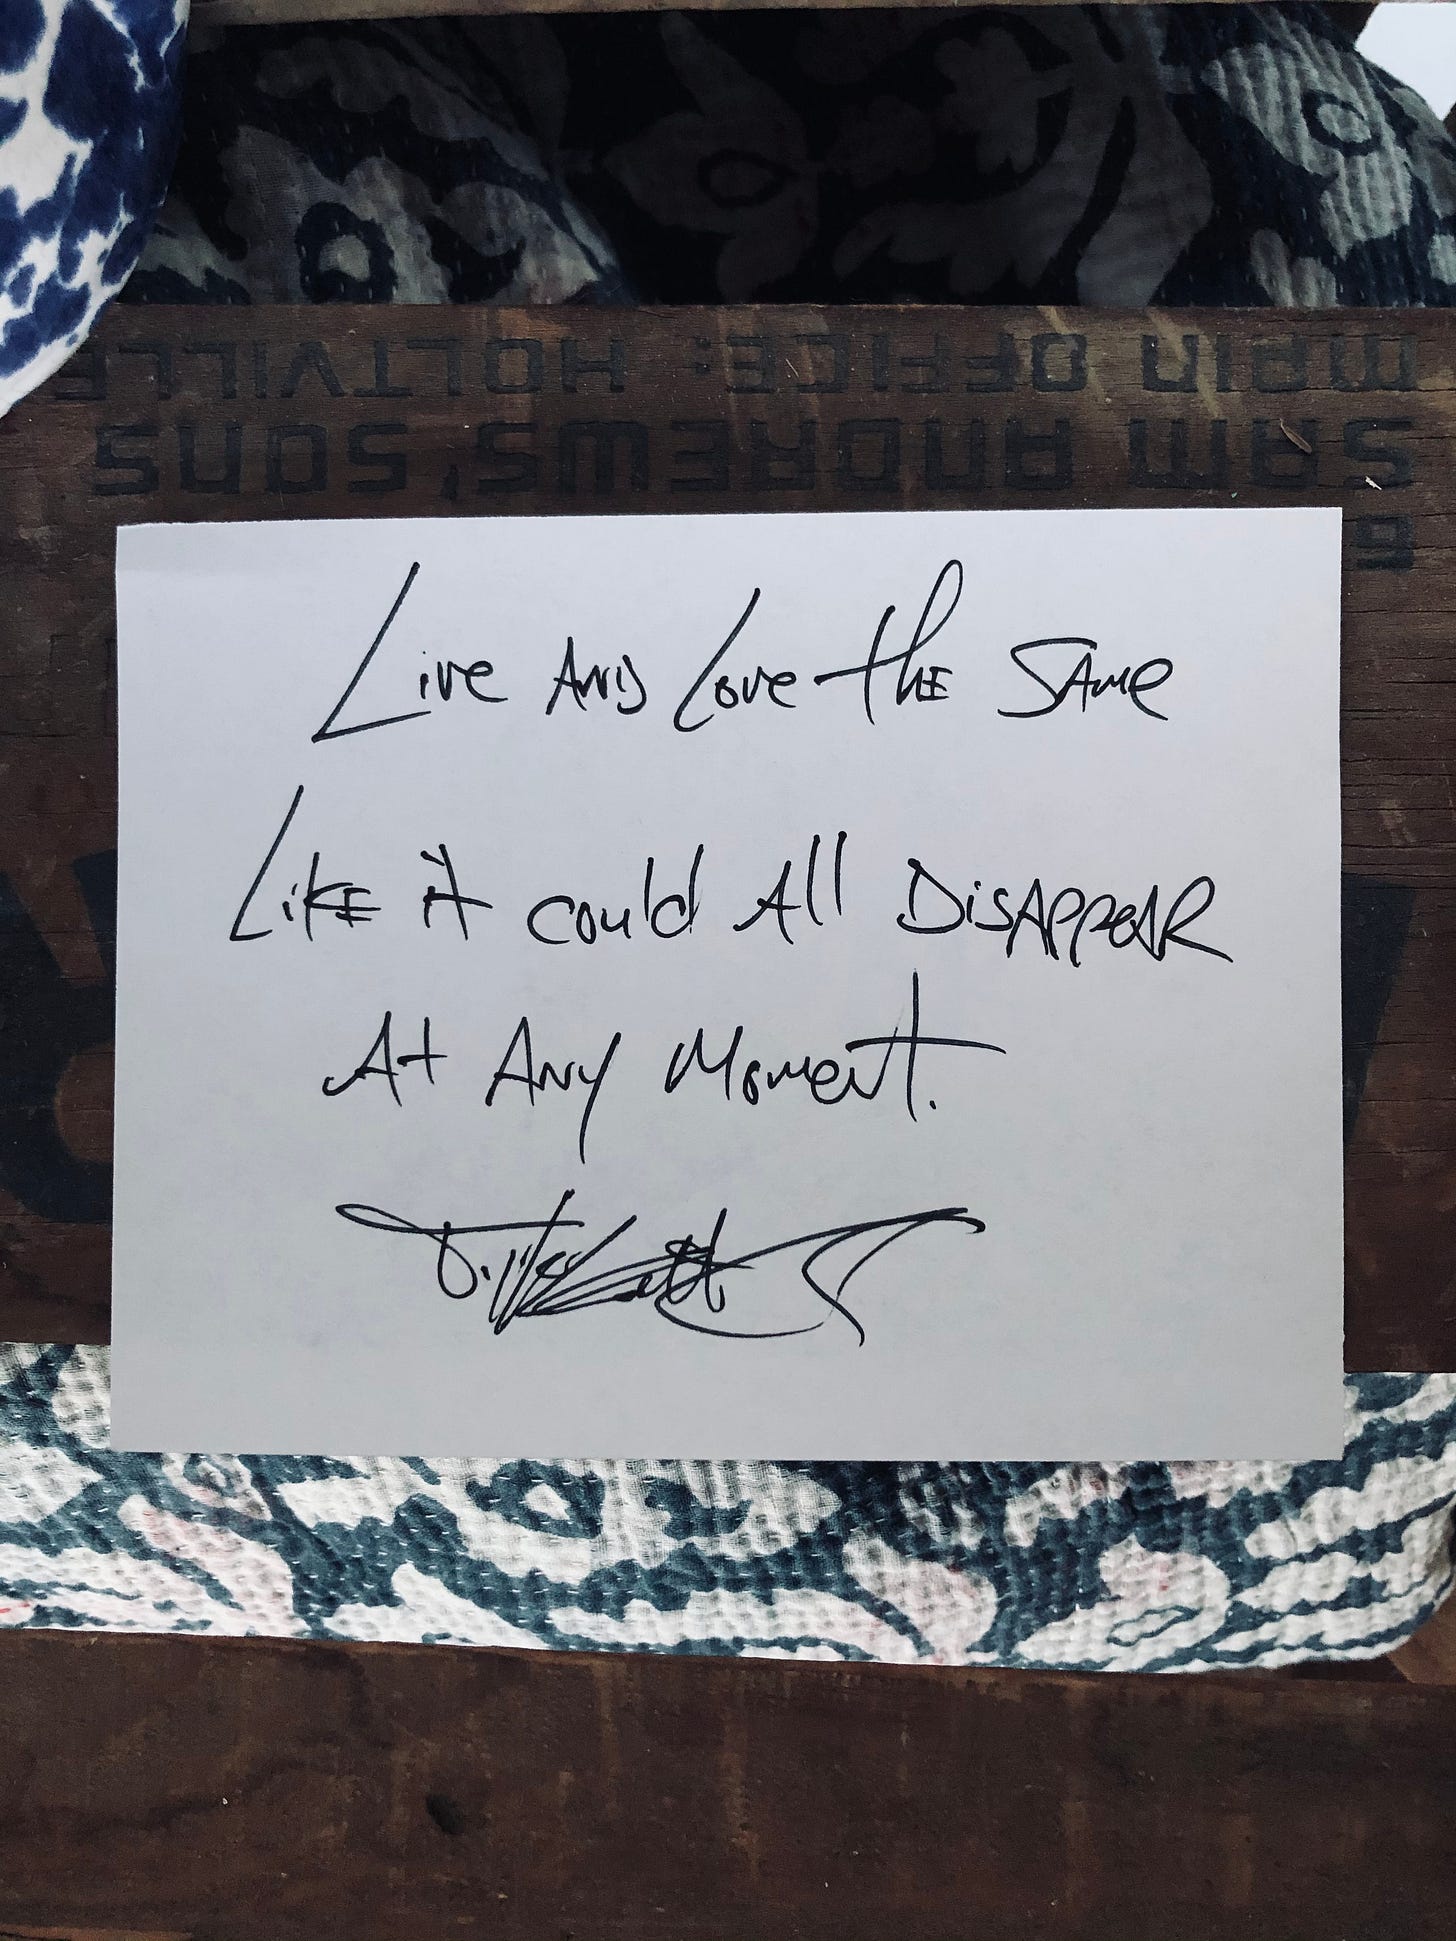 MAIN OFFICE: HOLTVILLE
SAM ANDREWS' SONS
6
Live And Love the Same
Like it could All DisAppeAR
At Any Moment.